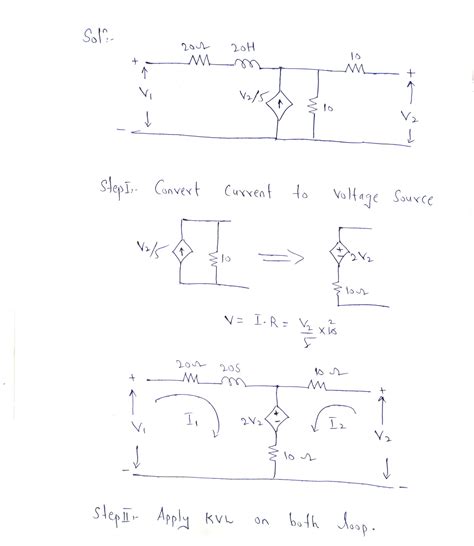 Solⁿ:-
20Ω 20H 10
+ +
V₁ V₂/5 10 V₂
- -
Step I:- Convert Current to Voltage Source
V₂/5 10 ⇒ + - 2V₂
10Ω
V = I·R = V₂/5 × 10 2
20Ω 20S 10Ω
+ + +
V₁ I₁ 2V₂ - I₂ V₂
10Ω
- -
Step II:- Apply KVL on both loop.